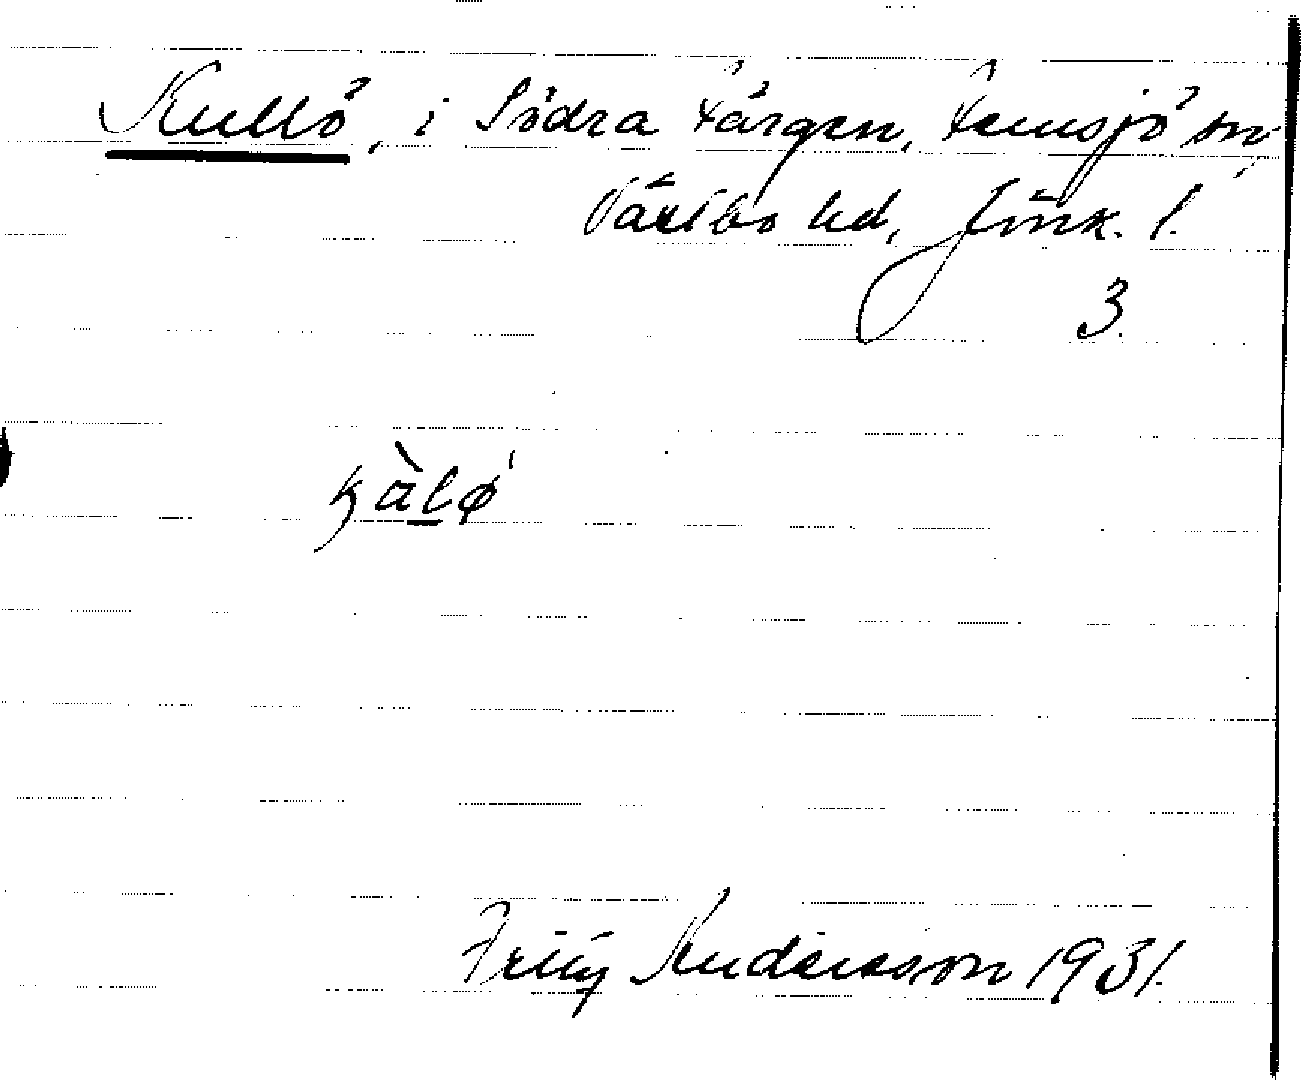 Kullö, i Södra Färgen, Femsjö sn,
Västbo hd, Jönk. l.
3.
kàlø'
Fritz Andersson 1931.